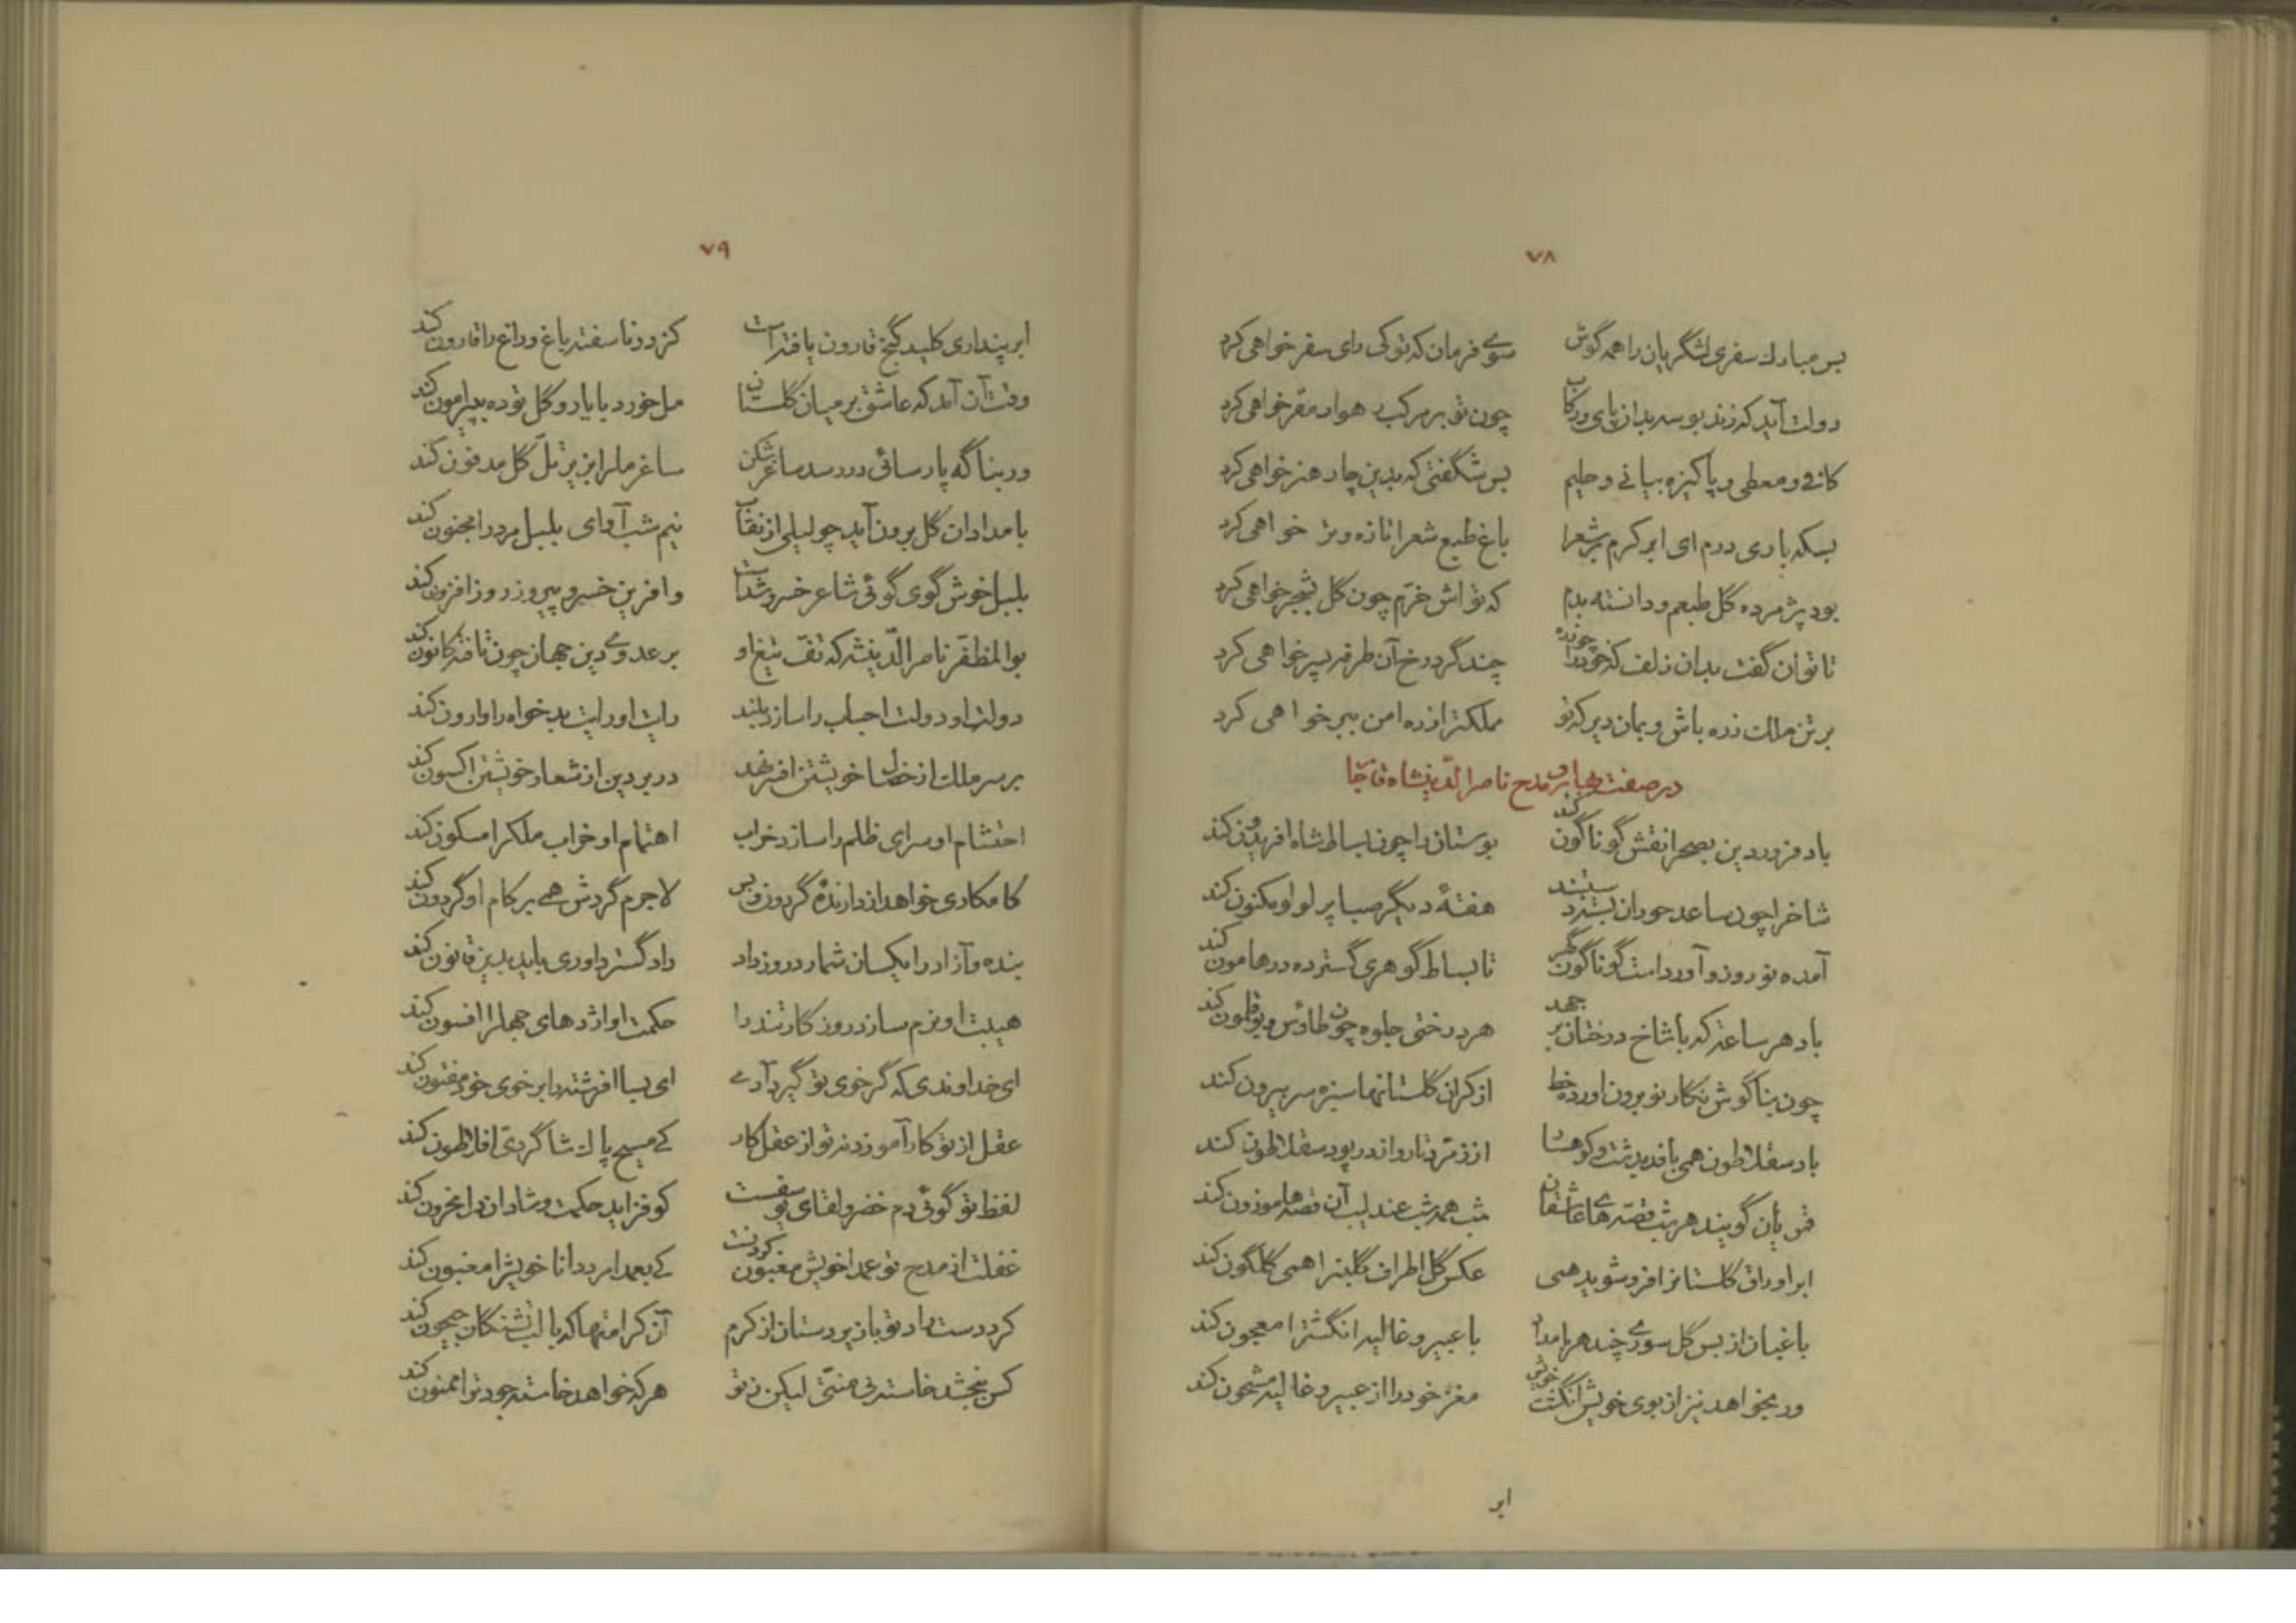 ۷۸
بس مبارک سفری لشگریان را همه گوش سوی فرمان که تو کی رای سفر خواهی کرد
دولت آید که زند بوسه بدان پای و رکاب چون تو بر مرکب رهوار مقر خواهی کرد
کافی و معطی و پاکیزه بیانی و حلیم بس شگفتی که بدین چار هنر خواهی کرد
بسکه باری درم ای ابر کرم بر شعرا باغ طبع شعرا تازه و تر خواهی کرد
بود پژمرده گل طبعم و دانسته بدم که تو اش خرم چون گل بشجر خواهی کرد
تا توان گفت بدان زلف که خود را چو زره چند گرد رخ آن طرفه پسر خواهی کرد
بر تن ملک زره باش و بمان دیر که تو مملکترا زره امن ببر خواهی کرد
در صفت بهار و مدح ناصر الدینشاه قاجار
باد فروردین بصحرا نقش گوناگون کند بوستان را چون بساط شاه افریدون کند
شاخ را چون ساعد حوران سیمین دستبند هفتهٔ دیگر صبا پر لولو مکنون کند
آمده نوروز و آورداست گوناگون گهر تا بساط گوهری گسترده در هامون کند
باد هر ساعت که با شاخ درختان بر جهد هر درختی جلوه چون طاوس و بوقلمون کند
چون بناگوش نگار نو برون آورده خط از کران گلستانها سبزه سر بیرون کند
باد سقلاطون همی بافد بدشت و کوهسار از زمرد تار و اندر پود سقلاطون کند
قمریان گویند هر شب قصه های عاشقان شب همه شب عندلیب آن قصه ها موزون کند
ابر اوراق گلستانرا فرو شوید همی عکس گل اطراف گلبنرا همی گلگون کند
باغبان از بس گل سوری چند هر بامداد با عبیر و غالیه انگشترا معجون کند
ور بخواهد نیز از بوی خویش انگشت خوش مغز خود را از عبیر و غالیه مشحون کند
ابر
۷۹
ابر پنداری کلید گنج قارون یافته است کز در ناسفته باغ و راغ را قارون کند
وقت آن آمد که عاشق بر میان گلستان مل خورد با یار و گل توده بپیرامون کند
ور بناگه پارسائی در رسد ساغر شکن ساغر ملرا بزیر تل گل مدفون کند
بامدادان گل برون آید چو لیلی از نقاب نیم شب آوای بلبل مرد را مجنون کند
بلبل خوش گوی گوئی شاعر خسرو شده است وافرین خسرو پیروز روز افزون کند
بوالمظفر ناصر الدینشه که تف تیغ او بر عدوی دین جهان چون تافته کانون کند
دولت او دولت احباب را سازد بلند رایت او رایت بدخواه را وارون کند
بر سر ملک از خصال خویشتن افسر نهد در بر دین از شعار خویشتن اکسون کند
احتشام او سرای ظلم را سازد خراب اهتمام او خراب ملکرا مسکون کند
کامکاری خواهد از دارندهٔ گردون و بس لاجرم گردش همی بر کام او گردون کند
بنده و آزاد را یکسان شمارد روز داد دادگستر داوری باید بدین قانون کند
هیبت او نرم سازد روزگار تند را حکمت او اژدهای جهلرا افسون کند
ای خداوندی که گر خوی تو گیرد آدمی ای بسا افرشته را بر خوی خود مفتون کند
عقل از تو کار آموزد نه تو از عقل کار کی مسیح پاک شاگردی افلاطون کند
لفظ تو گوئی دم خضر و لقای یوسفست کو فزاید حکمت و شادان دل محزون کند
غفلت از مدح تو عمدا خویش مغبون کردنست کی بعمدا مرد دانا خویشرا مغبون کند
کرد دست راد تو با زیردستان از کرم آن کرامتها که با لب تشنگان جیحون کند
کس نبخشد خاسته بی منتی لیکن ز تو هر که خواهد خاسته جود ترا ممنون کند